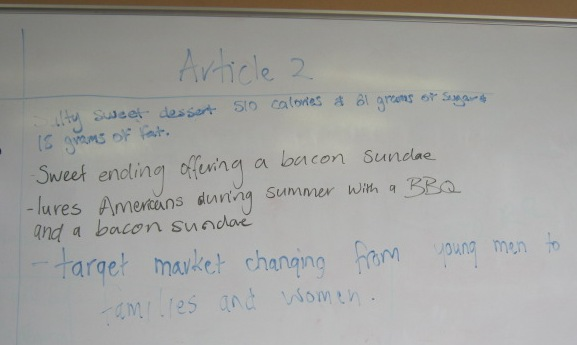 Article 2
salty sweet dessert 510 calories & 61 grams of sugar &
15 grams of fat.
-Sweet ending offering a bacon sundae
-lures Americans during summer with a BBQ
and a bacon sundae
- target market changing from young men to
families and women.